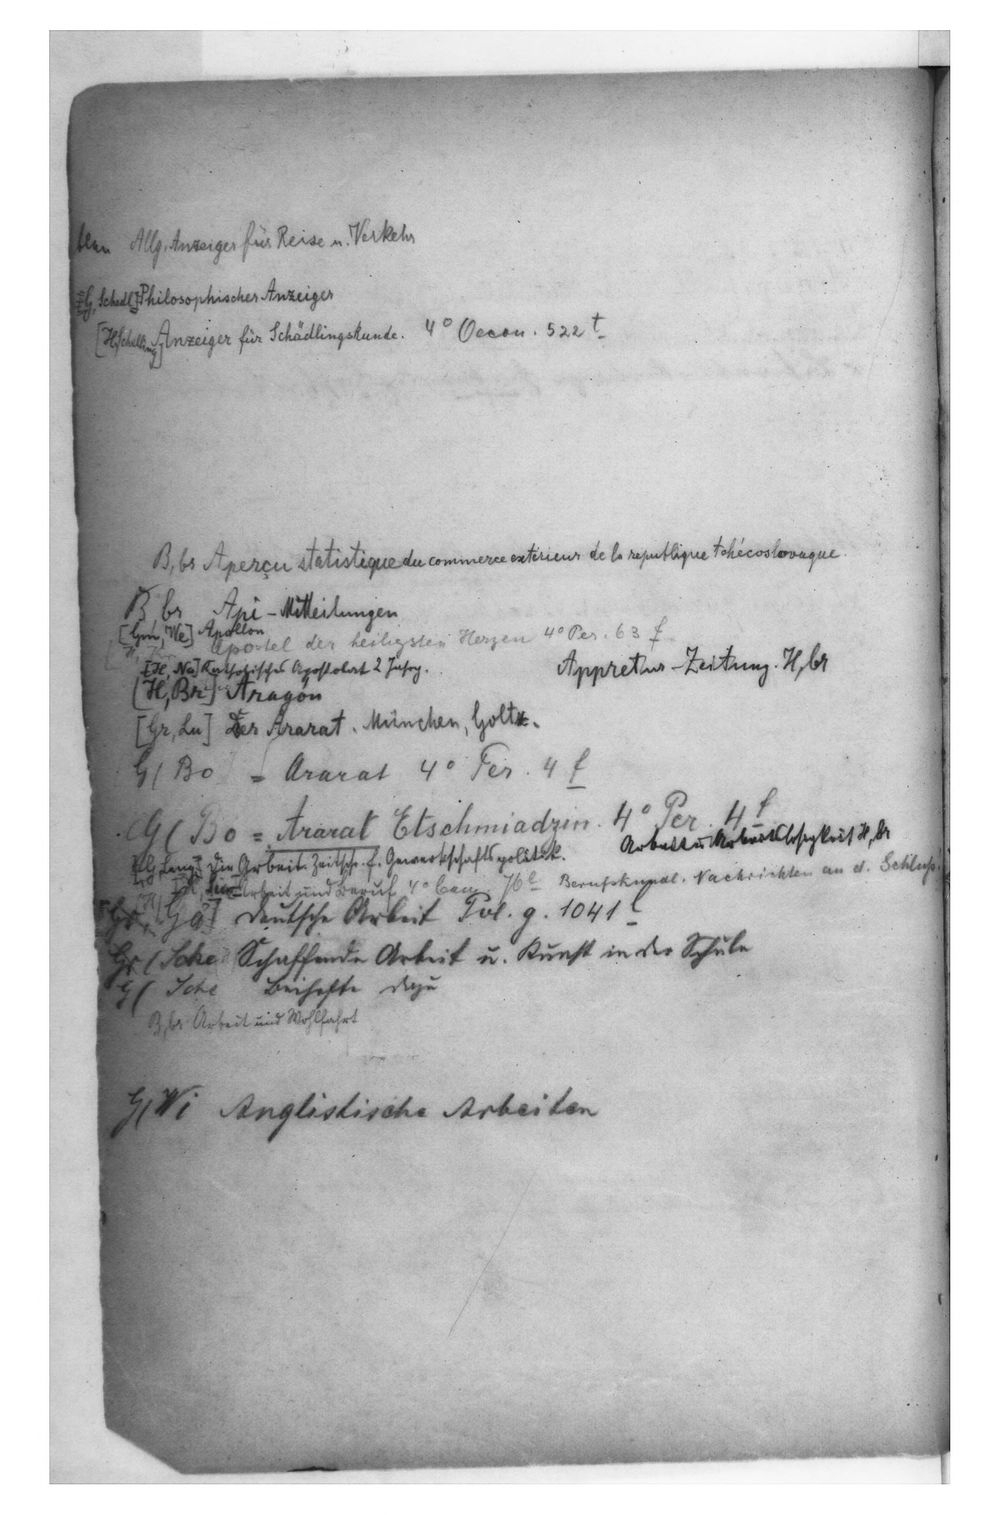 Allg. Anzeiger für Reise u. Verkehr
[G, Schedl] Philosophischer Anzeiger
[H, Schilling] Anzeiger für Schädlingskunde. 4° Oecon. 522 t
B, br Aperçu statistique du commerce extérieur de la republique tchécoslovaque.
B br Api-Mitteilungen
[Gm, We] Apollon
Apostel der heiligsten Herzen 4° Per. 63 f
[H, Na] Katholisches Apostolat 2 Jahrg.
Appretur-Zeitung. H, br
[H, Br] Aragón
[Gr, Lu] Der Ararat. München, Goltz.
G( Bo = Ararat 4° Per. 4 f
G( Bo = Ararat Etschmiadzin. 4° Per. 4 f
Arbeit u. Arbeitslosigkeit H, br
[G Lang] Die Arbeit. Zeitschr. f. Gewerkschaftspolitik.
Arbeit und Beruf 4° Cam. 76 e Berufskundl. Nachrichten an d. Schluss.
deutsche Arbeit Pol. g. 1041 l
Gr( Sche Schaffende Arbeit u. Kunst in der Schule
G( Sche Beihefte dazu
B, br Arbeit und Wohlfahrt
G( Wi Anglistische Arbeiten